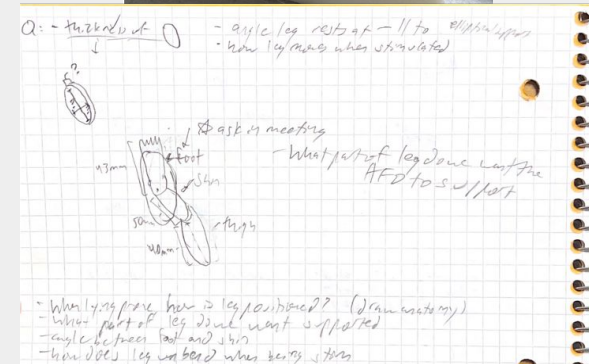 Q: - thickness of
- angle leg rests at - || to
- how leg moves when stimulated
?
ask in meeting
- What part of leg do we want the
AFO to support
foot
43mm
shin
thigh
40mm
- When lying prone how is leg positioned? (draw anatomy)
- what part of leg do we want supported
- angle between foot and shin
- how does leg bend when being